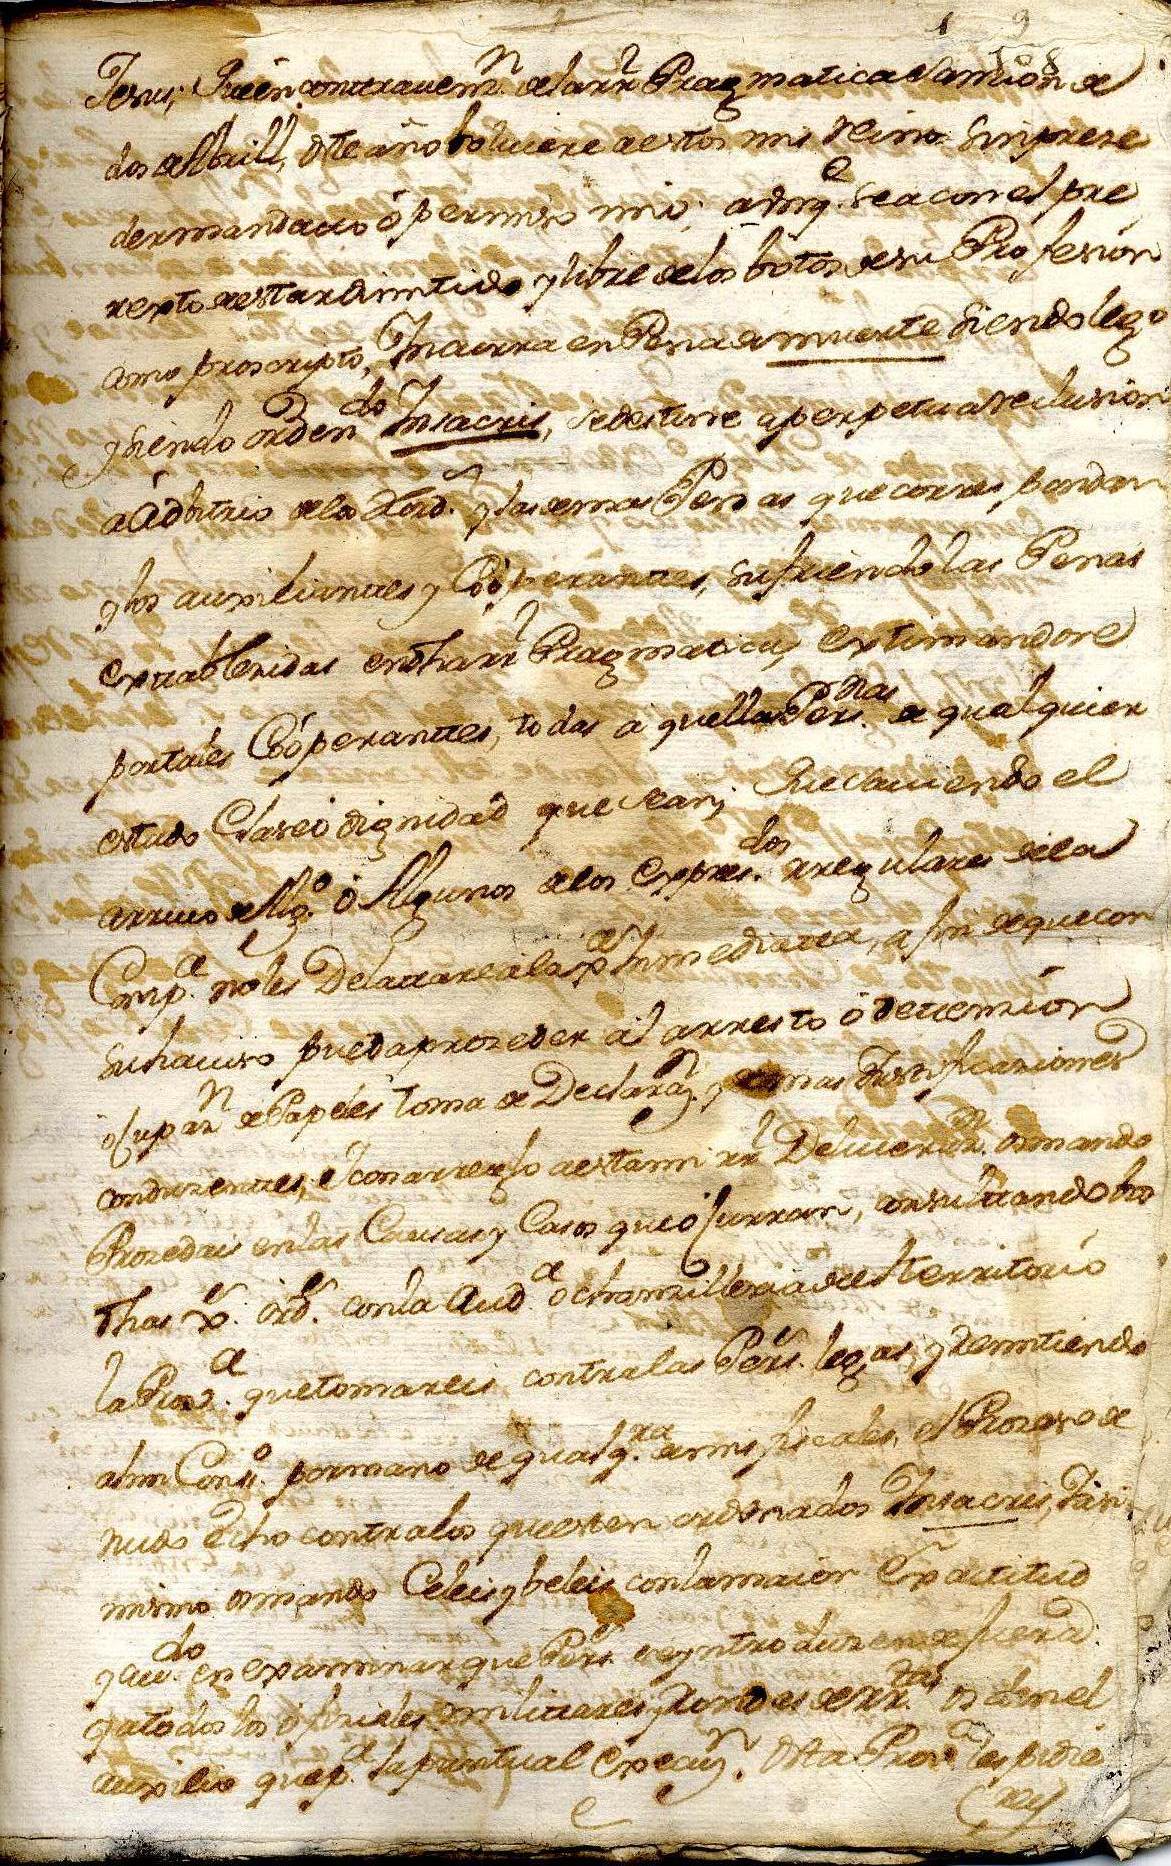 1 9
158
Jesus, Que en contravenn. de la rl Pragmatica Sancion de
dos de Abrill, dte año bolviere a estos mis Reinos Sin preze
der mandacto ó permiso mio, aunqe. sea con el pre
texto de estar dimitido y libre de los botos de su Profesion
como proscripto, Incurra en Pena de muerte siendo lego
y siendo ordendo Insacris, se destine a perpetua reclusion
a Adbitrio de los Ord.s y las demas Penas que correspondan
y los auxiliantes y Coóperantes, sufriendo las Penas
extablezidas en dha rl Pragmatica, extimandose
por tales Coóperantes, todas aquellas Persnas. de qualquier
estado Clase ó dignidad que sean, que saviendo el
arrivo de Algo. ó Algunos de los Expresdos. rregulares de la
Compa. no les Delatare a la Jusa Inmediata, a fin de que con
su haviso pueda prozeder al arresto ó detencion
ocupazn de Papeles toma de Declarazn. y demas Justificaziones
conduzentes, Y con arreglo a esta mi rl Deliverazn. os mando
Prozedais en las Causas y Casos que ócurran, consultando los
Thas xs. ords. con la Auda ó chanzilleria del territorio
la Prova. que tomareis contra las Pers. legas, y remitiendo
al mi Conso. por mano de qualqra. de mis fiscales, el Prozeso de
nudo echo contra los que esten ordenados Insacris, Y asi
mismo os mando Celeis y beleis con la maior Exactitud
y cuido en examinar que Pers. se yntroduzen de fuera
ga todos los ofiziales militares y rondas de rrtas os den el
auxilio que pa. la puntual Execuzn. Dsta Prova. les pidie
reis